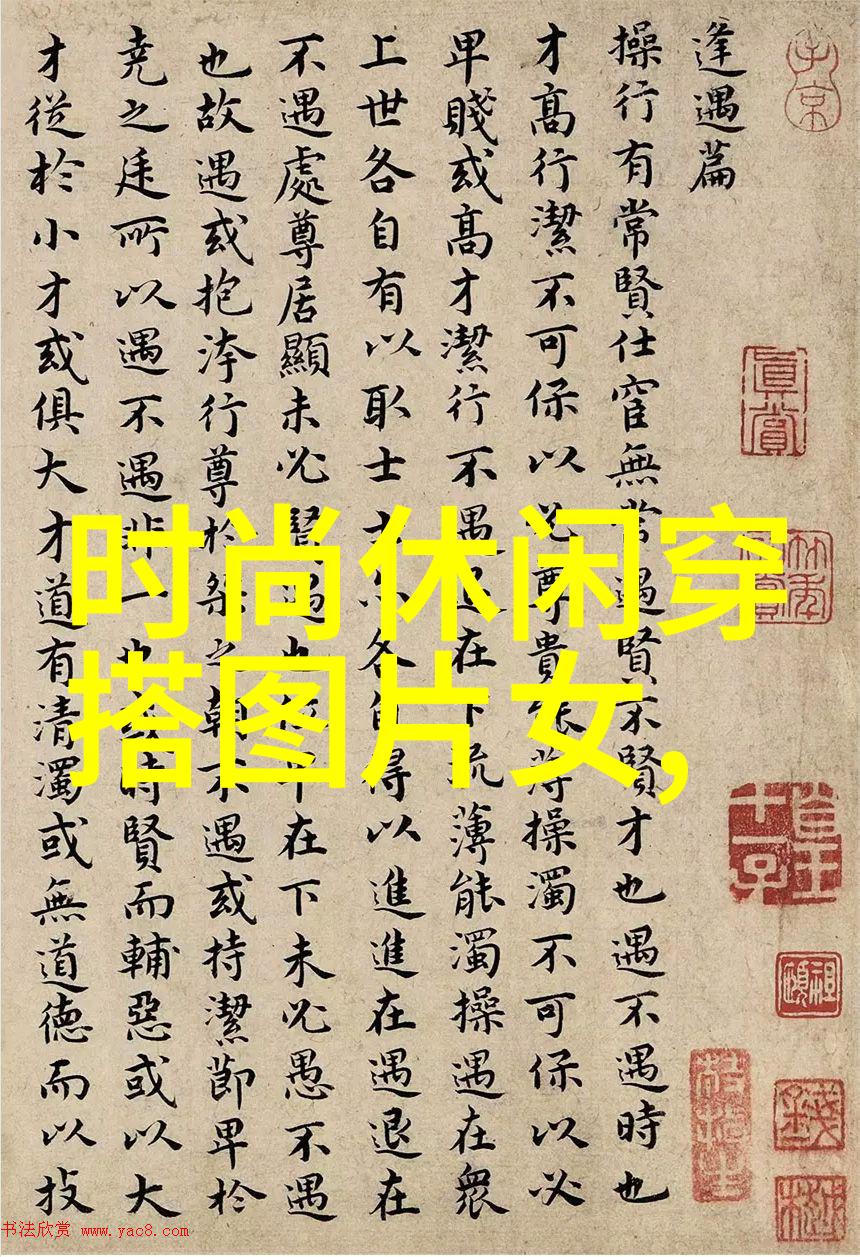 逢遇篇
操行有常賢仕宦無常遇賢不賢才也遇不遇時也
才高行潔不可保以必尊貴能薄操濁不可保以必
卑賤或高才潔行不遇退在下流薄能濁操遇在衆
上世各自有以取士士亦各自得以進進在遇退在
不遇處尊居顯未必賢遇也位卑在下未必愚不遇
也故遇或抱洿行尊於桀之朝不遇或持潔節卑於
堯之廷所以遇不遇非一也或時賢而輔惡或以大
才從於小才或俱大才道有清濁或無道德而以技
子京
真賞
时尚休闲穿
搭图片女,
书法欣赏 www.yac8.com